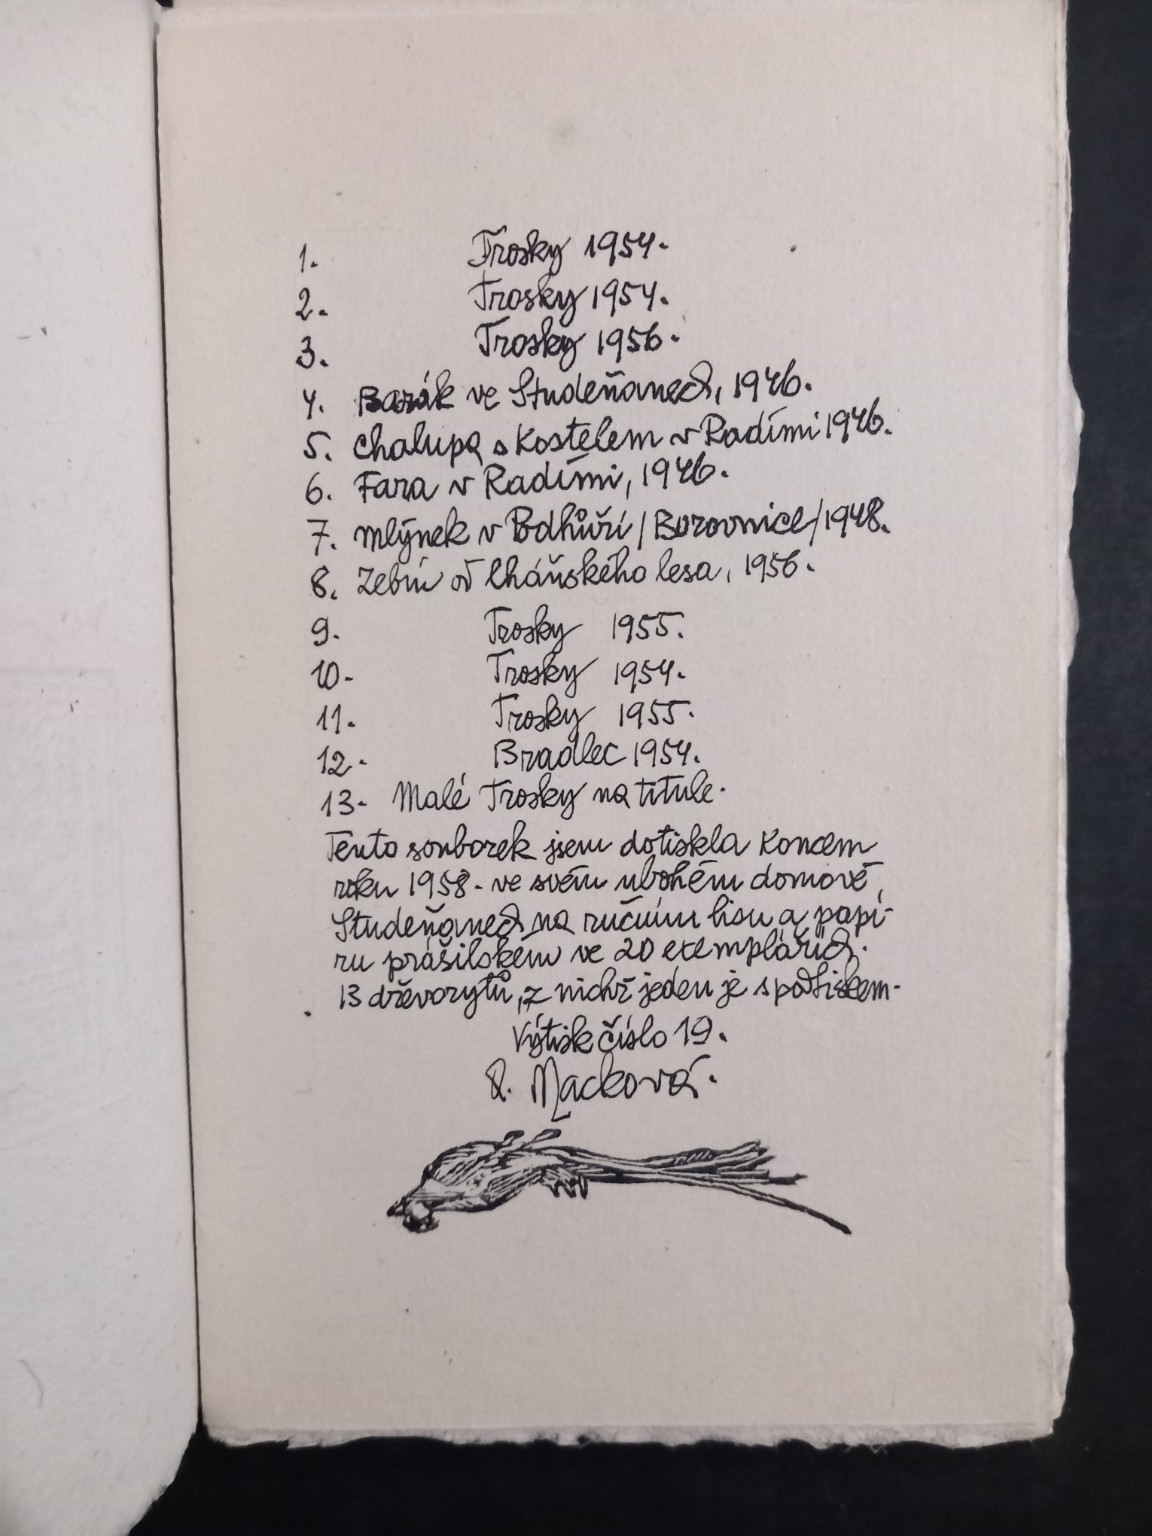 1. Trosky 1954.
2. Trosky 1954.
3. Trosky 1956.
4. Barák ve Studeňanech, 1946.
5. Chalupa s Kostelem v Radími 1946.
6. Fara v Radími, 1946.
7. Mlýnek v Podhůří /Borovnice/ 1948.
8. Zebín od lháňského lesa, 1956.
9. Trosky 1955.
10. Trosky 1954.
11. Trosky 1955.
12. Bradlec 1954.
13. Malé Trosky na titule.
Tento souborek jsem dotiskla Koncem
roku 1958. ve svém ubohém domově,
Studeňanech na ručním lisu a papí-
ru prášilském ve 20 exemplářích.
13 dřevorytů, z nichž jeden je s podtiskem.
Výtisk číslo 19.
R. Macková.